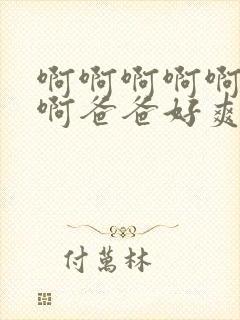 啊啊啊啊啊
啊爸爸好爽
付萬林